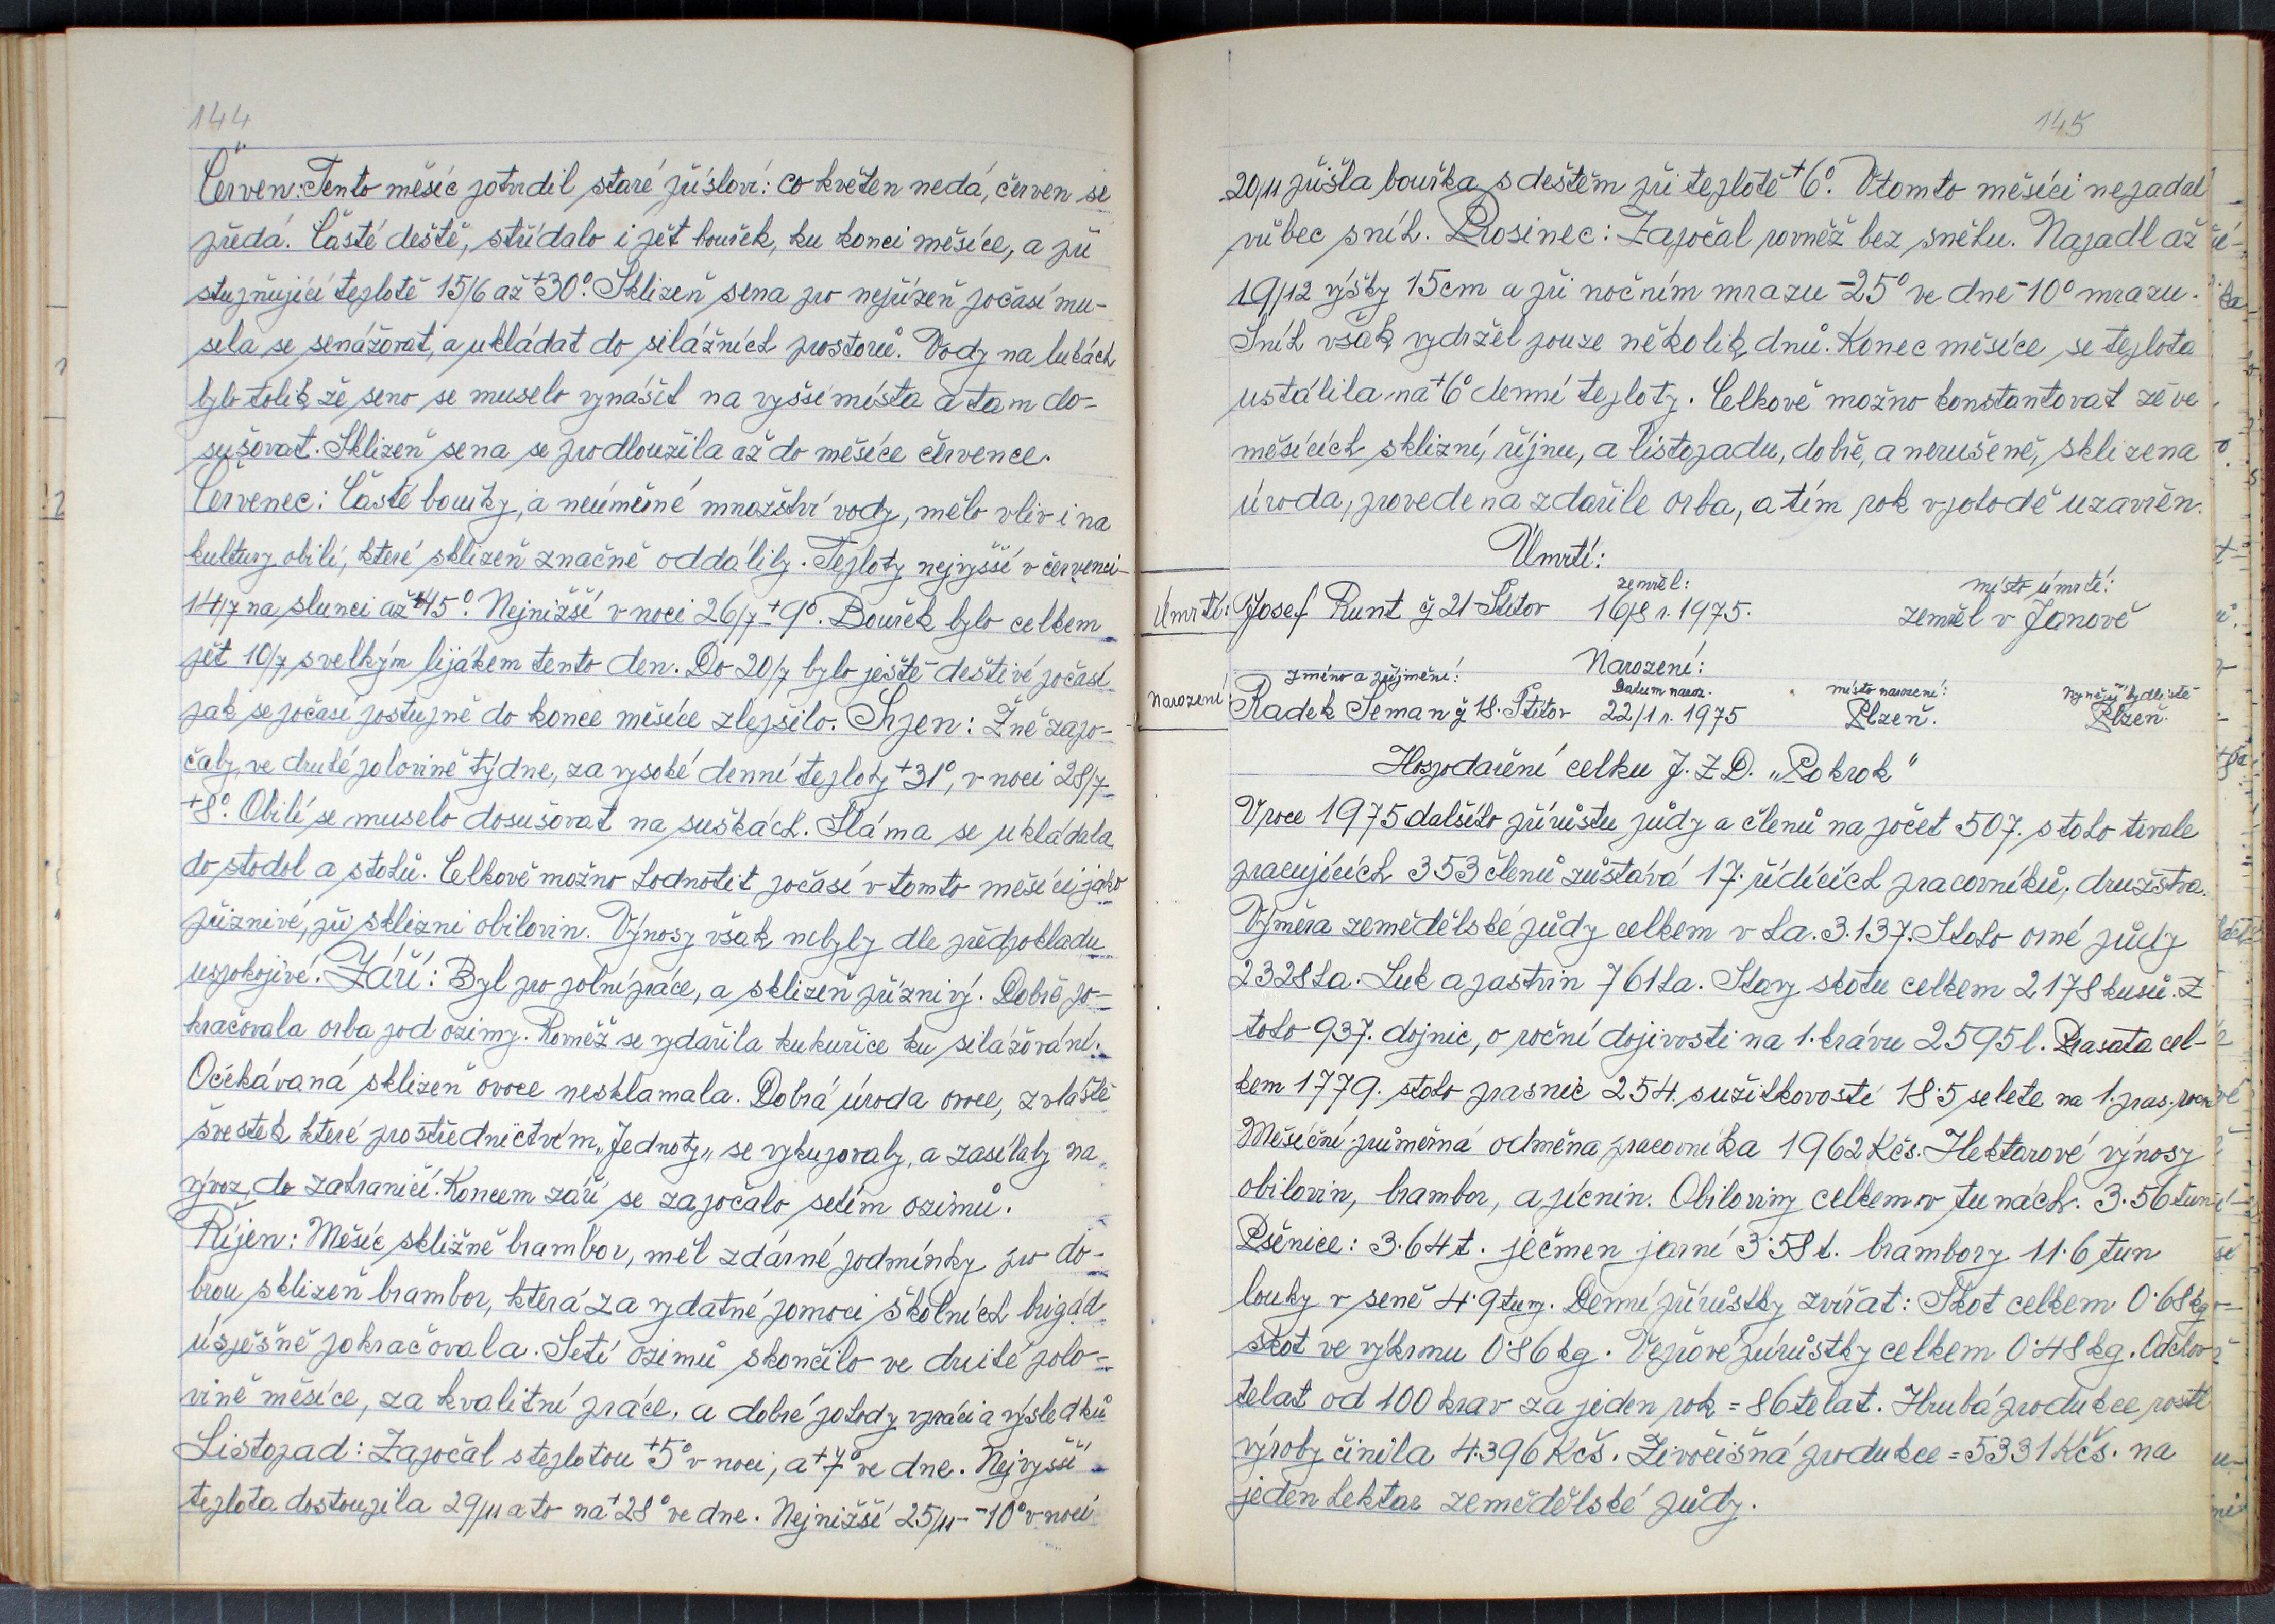 144
Červen: Tento měsíc potvrdil staré přísloví: co květen nedá, červen se
předá. Časté deště, střídalo i pět bouřek, ku konci měsíce, a při
stupňující teplotě 15/6 až +30°. Sklizeň sena pro nepřízeň počasí mu-
sela se senážovat, a ukládat do silážních prostorů. Vody na lukách
bylo tolik, že seno se muselo vynášet na vyšší místa a tam do-
sušovat. Sklizeň sena se prodloužila až do měsíce července.
Červenec: Časté bouřky, a neúměrné množství vody, mělo vliv i na
kultury obilí, které sklizeň značně oddálily. Teploty nejvyšší v červenci-
14/7 na slunci až +45°. Nejnižší v noci 26/7 +9°. Bouřek bylo celkem
pět 10/7 s velkým lijákem tento den. Do 20/7 bylo ještě deštivé počasí
pak se počasí postupně do konce měsíce zlepšilo. Srpen: Žně zapo-
čaly, ve druhé polovině týdne, za vysoké denní teploty +31°, v noci 28/7
+8°. Obilí se muselo dosušovat na suškách. Sláma se ukládala
do stodol a stohů. Celkově možno hodnotit počasí v tomto měsíci jako
příznivé, při sklizni obilovin. Výnosy však nebyly dle předpokladu
uspokojivé. Září: Byl pro polní práce, a sklizeň příznivý. Dobře po-
kračovala orba pod ozimy. Rovněž se vydařila kukuřice ku silážování.
Očekávaná sklizeň ovoce nesklamala. Dobrá úroda ovoce, zvláště
švestek které prostřednictvém „Jednoty„ se vykupovaly, a zasílaly na
vývoz, do zahraničí. Koncem září se započalo setím ozimů.
Říjen: Měsíc sklizně brambor, měl zdárné podmínky pro do-
brou sklizeň brambor, která za vydatné pomoci školních brigád
úspěšně pokračovala. Setí ozimů skončilo ve druhé polo-
vině měsíce, za kvalitní práce, a dobré pohody v práci a výsledků
Listopad: Započal s teplotou +5° v noci, a +7° ve dne. Nejvyšší
teplota dostoupila 29/11 a to na +28° ve dne. Nejnižší 25/11 - -10° v noci
145
20/11 přišla bouřka s deštěm při teplotě +6°. V tomto měsíci nepadal
vůbec sníh. Prosinec: Započal rovněž bez sněhu. Napadl až
19/12 výšky 15cm a při nočním mrazu -25° ve dne -10° mrazu.
Sníh však vydržel pouze několik dnů. Konec měsíce se teplota
ustálila na +6° denní teploty. Celkově možno konstantovat že ve
měsících sklizní, říjnu, a listopadu, dobře, a nerušeně, sklizena
úroda, provedena zdařile orba, a tím rok v pohodě uzavřen.
Úmrtí:
zemřel: místo úmrtí:
Úmrtí: Josef Runt č 21 Štítov 16/8 r. 1975. zemřel v Janově
Narození:
Jméno a příjmení: Datum naroz. místo narození: nynější bydliště
Narození: Radek Seman č 18. Štítov 22/1 r. 1975 Plzeň. Plzeň.
Hospodaření celku J.Z.D. „Pokrok"
V roce 1975 dalšího přírůstu půdy a členů na počet 507. s toho trvale
pracujících 353 členů zůstává 17. řídících pracovníků, družstva.
Výměra zemědělské půdy celkem v ha. 3.137. Stoho orné půdy
2328 ha. Luk a pastvin 761 ha. Stavy skotu celkem 2178 kusů. Z
toho 937. dojnic, o roční dojivosti na 1. krávu 2595 l. Prasata cel-
kem 1779. stoho prasnic 254. s užitkovostí 18.5 selete na 1. pras. roč.
Měsíční průměrná odměna pracovníka 1962 Kčs. Hektarové výnosy
obilovin, brambor, a pícnin. Obiloviny celkem v tunách. 3.56 tun
Pšenice: 3.64 t. ječmen jarní 3.58 t. brambory 11.6 tun
louky v seně 4.9 tuny. Denní přírůstky zvířat: Skot celkem 0.68 kg
skot ve výkrmu 0.86 kg. Vepřové přírůstky celkem 0.48 kg. Odchov
telat od 100 krav za jeden rok = 86 telat. Hrubá produkce rostl.
výroby činila 4.396 Kčs. Živočišná produkce = 5331 Kčs. na
jeden hektar zemědělské půdy.